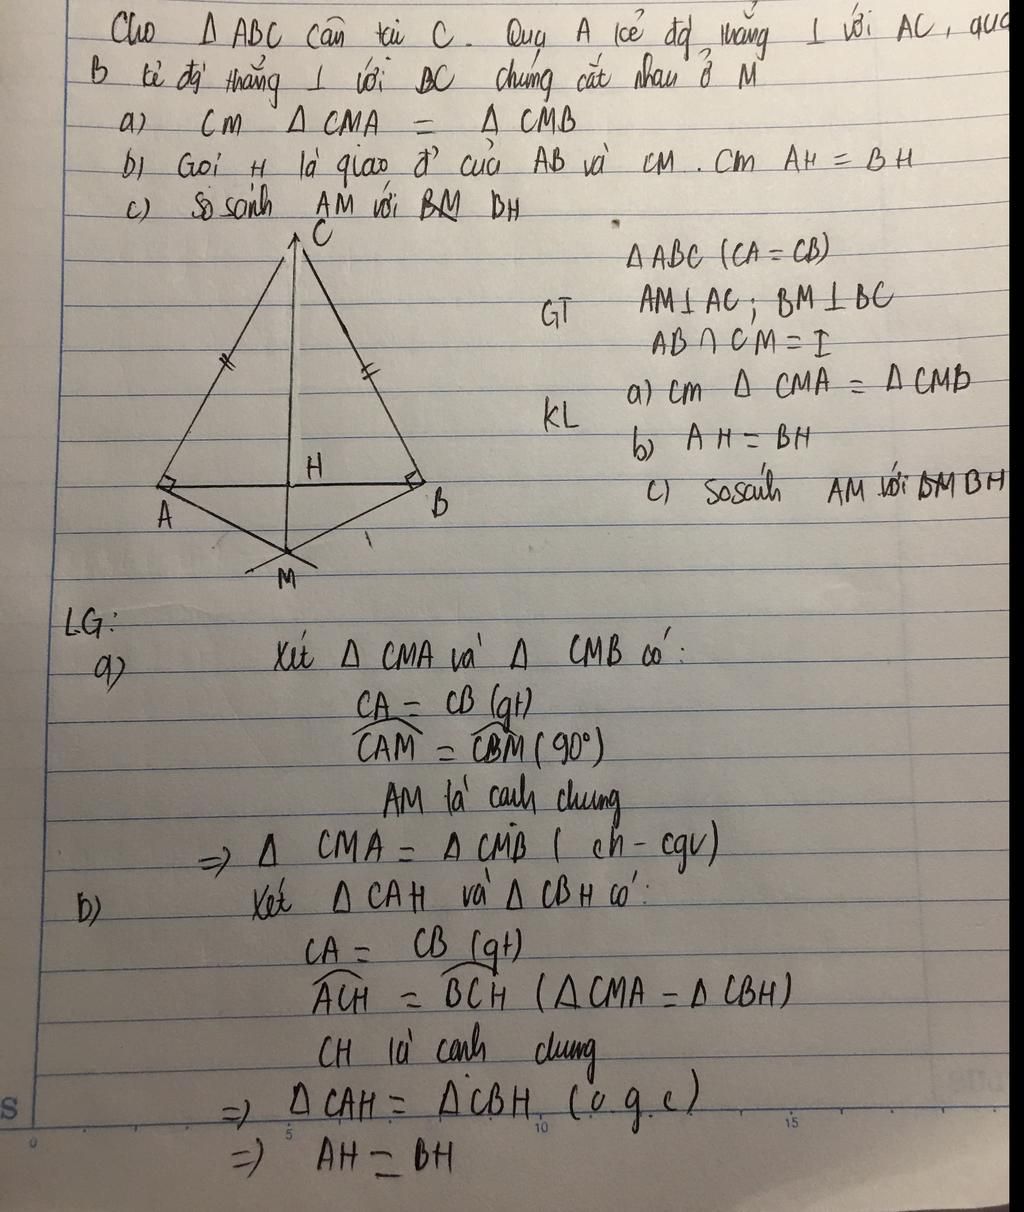 Cho Δ ABC cân tại C. Qua A kẻ đg thẳng ⊥ với AC, qua
B kẻ đg thẳng ⊥ với BC chúng cắt nhau ở M
a) Cm Δ CMA = Δ CMB
b) Gọi H là giao đ' của AB và CM. Cm AH = BH
c) So sánh AM với BM BH
C
H
A
B
M
GT
Δ ABC (CA = CB)
AM ⊥ AC; BM ⊥ BC
AB ∩ CM = I
KL
a) cm Δ CMA = Δ CMB
b) AH = BH
c) So sánh AM với BM BH
LG:
a) Xét Δ CMA và Δ CMB có:
CA = CB (gt)
CAM = CBM (90°)
AM là cạnh chung
=> Δ CMA = Δ CMB ( ch - cgv)
b) Xét Δ CAH và Δ CBH có:
CA = CB (gt)
ACH = BCH (Δ CMA = Δ CBH)
CH là cạnh chung
=> Δ CAH = Δ CBH (c.g.c)
=> AH = BH
S
0 5 10 15